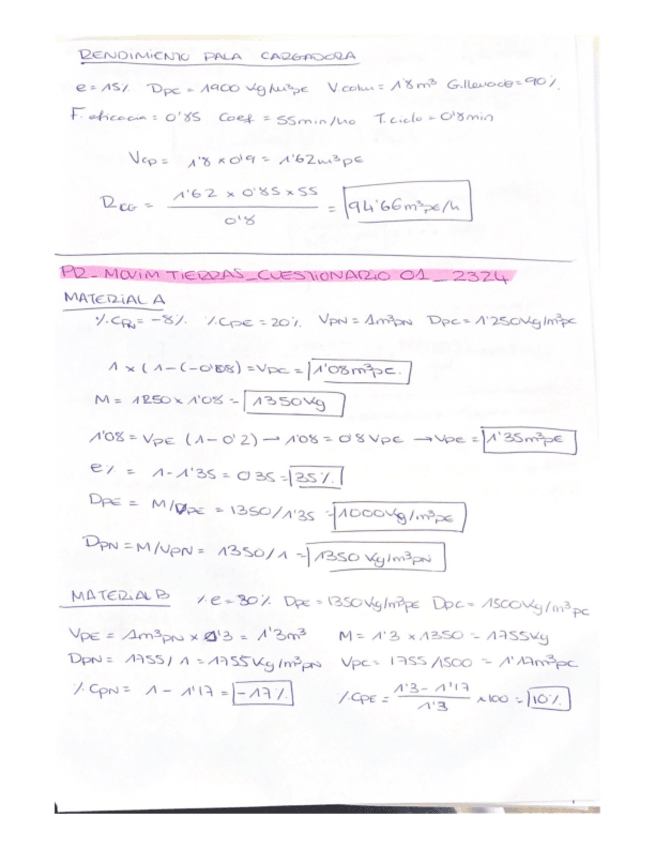 RENDIMIENTO PALA CARGADORA
e = 15% Dpe = 1900 Kg/m³pe V.colm = 1'8m³ G.llenado = 90%
F. eficacia = 0'85 Coef = 55min/ho T.ciclo = 0'8min
Vcp = 1'8 x 0'9 = 1'62m³pe
RCG = 1'62 x 0'85 x 55 / 0'8 = 94'66m³pe/h
PR_MOVIM TIERRAS_CUESTIONARIO 01_2324
MATERIAL A
%CPN = -8% %CPE = 20% VPN = 1m³PN DPC = 1'250Kg/m³pc
1 x (1-(-0'08)) = VPC = 1'08m³pc.
M = 1250 x 1'08 = 1350Kg
1'08 = VPE (1-0'2) → 1'08 = 0'8 VPE → VPE = 1'35m³pE
e% = 1-1'35 = 0'35 = 35%
DPE = M/VPE = 1350/1'35 = 1000Kg/m³pE
DPN = M/VPN = 1350/1 = 1350 Kg/m³PN
MATERIAL B %e = 30% DPE = 1350Kg/m³pE DPC = 1500Kg/m³pc
VPE = 1m³PN x 1'3 = 1'3m³ M = 1'3 x 1350 = 1755Kg
DPN = 1755/1 = 1755Kg/m³PN VPC = 1755/1500 = 1'17m³pc
%CPN = 1 - 1'17 = -17% %CPE = 1'3 - 1'17 / 1'3 x100 = 10%